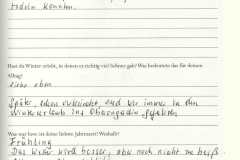 rodeln konnten.
Hast du Winter erlebt, in denen es richtig viel Schnee gab? Was bedeutete das für deinen
Alltag?
siehe oben
Später, schon verheiratet, sind wir immer in den
Winterurlaub ins Oberengadin gefahren
Was war bzw. ist deine liebste Jahreszeit? Weshalb?
Frühling
Das Wetter wird besser, aber noch nicht zu heiß.